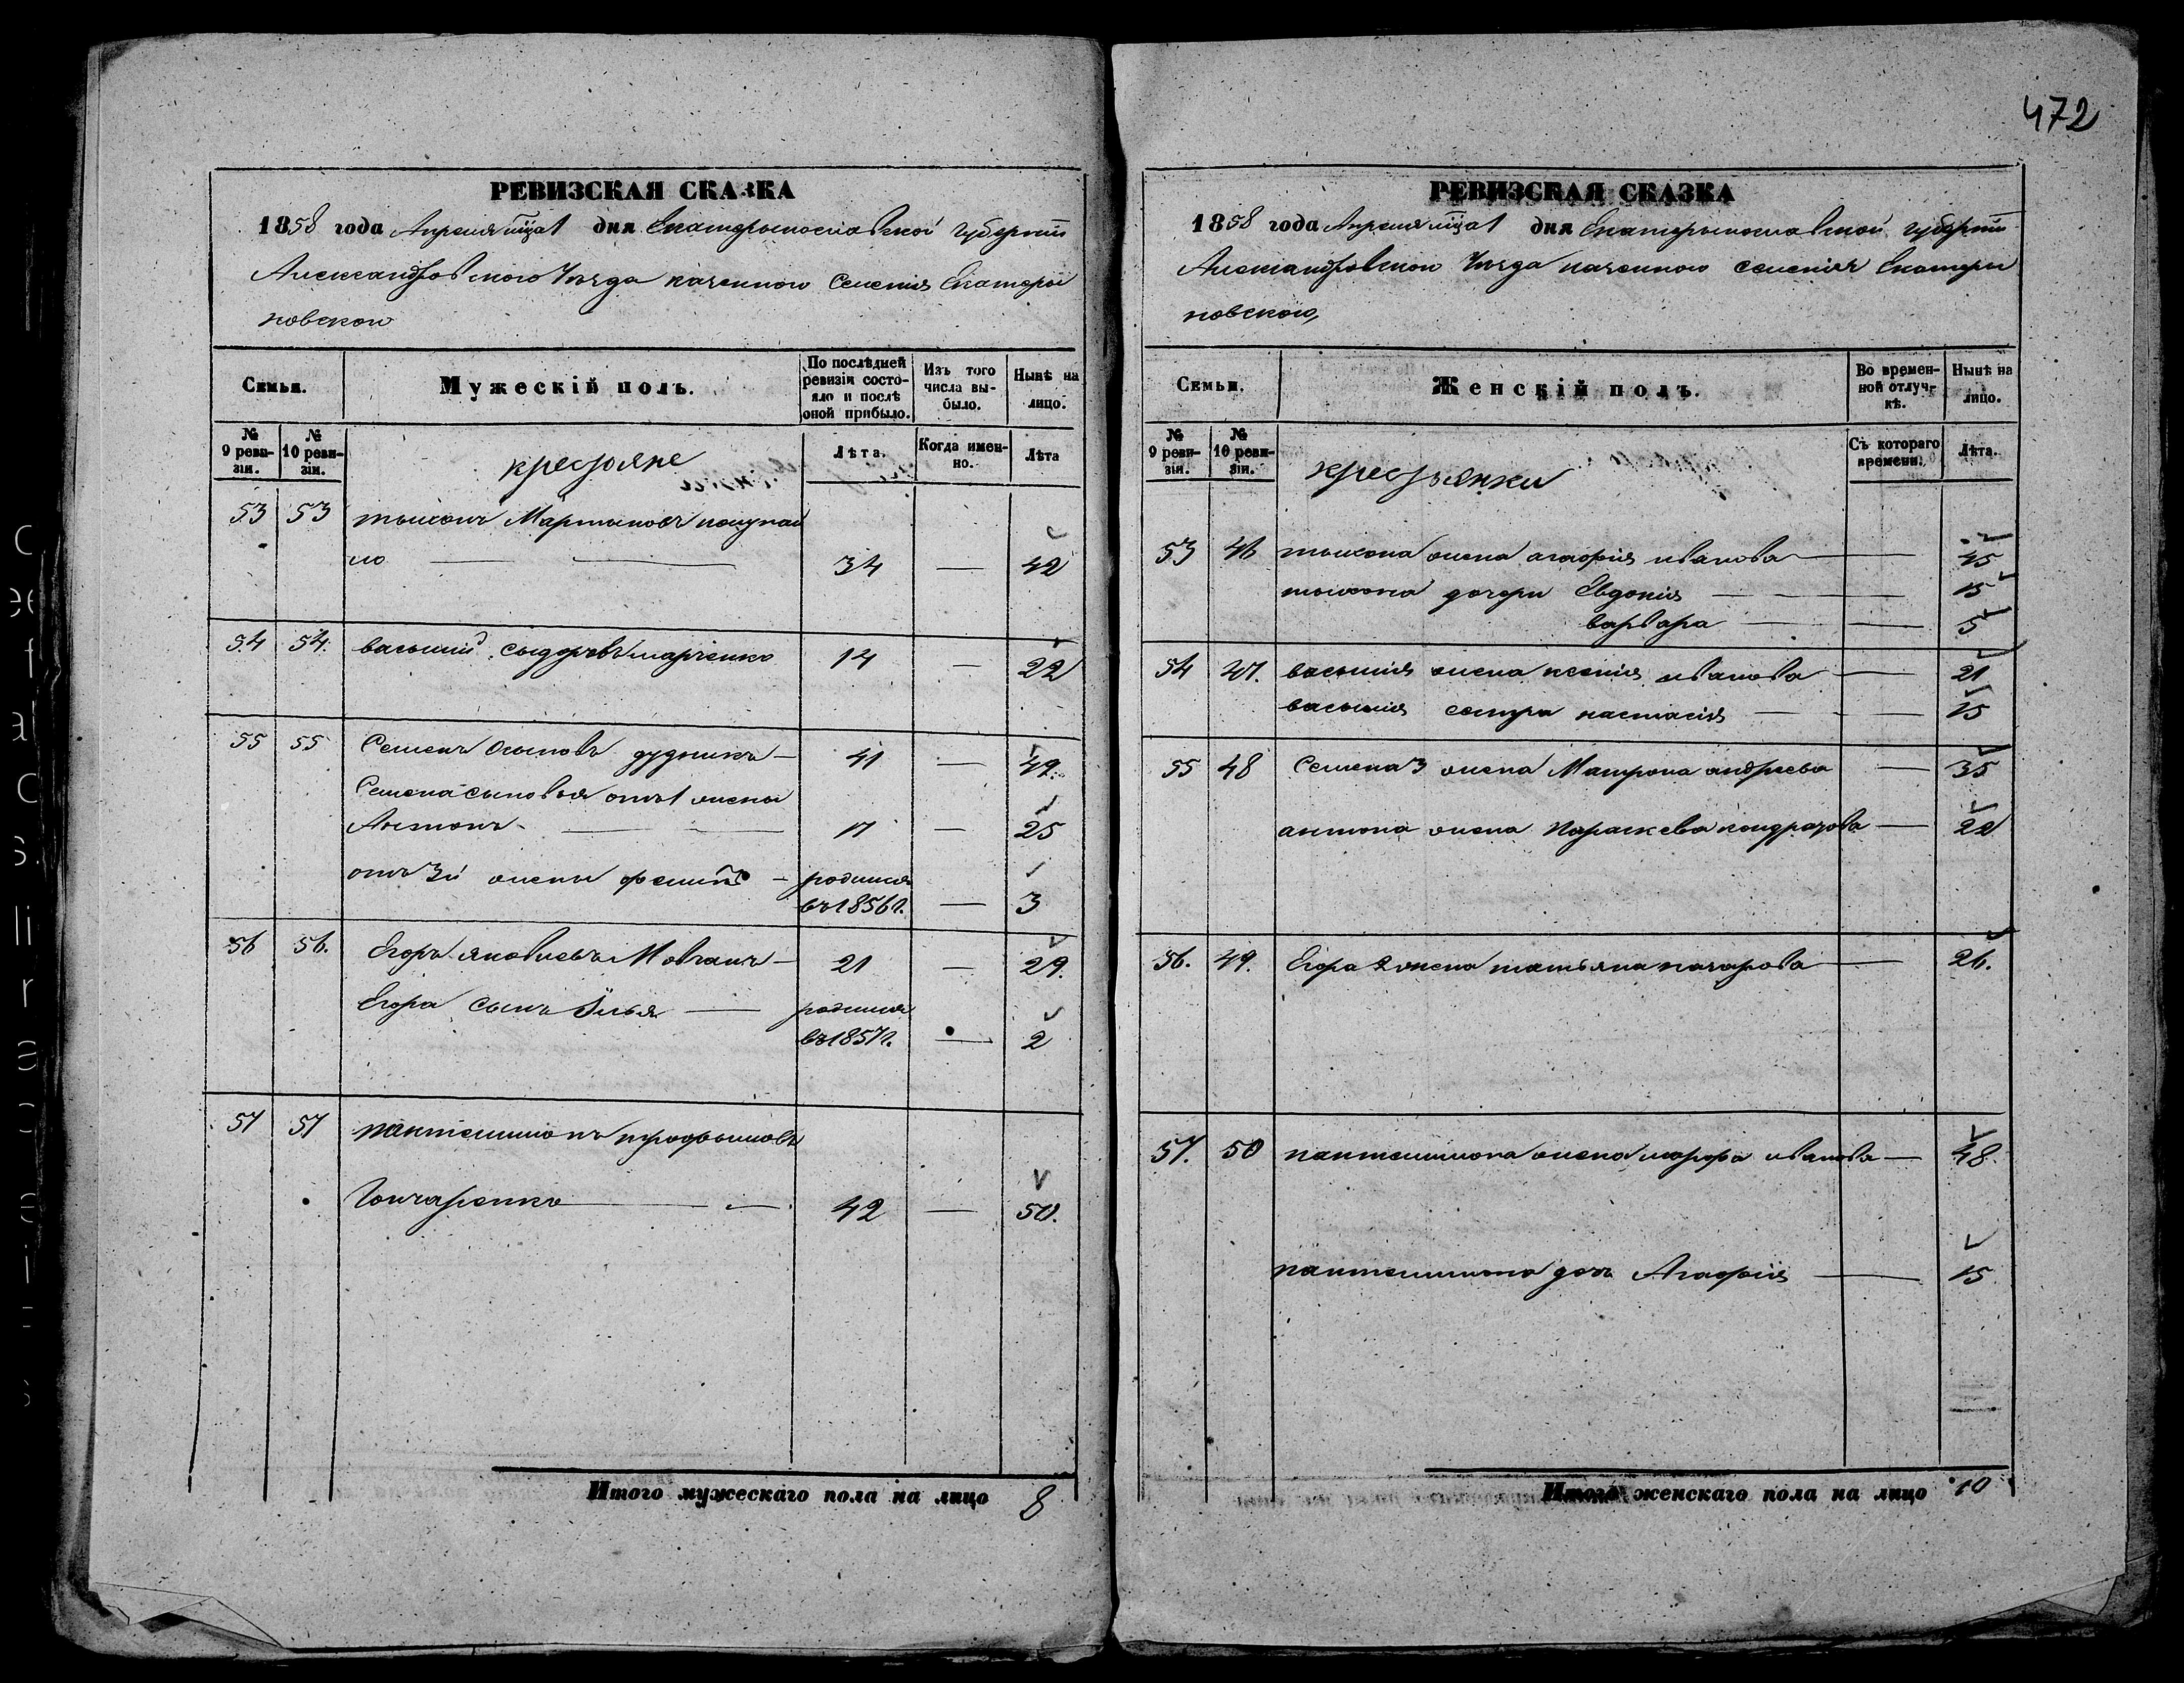 472
РЕВИЗСКАЯ СКАЗКА
1858 года Апреля мца 1 дня Екатерынославской губернии
Александровского Уезда казенного Селения Екатери
новского
Семьи.
Мужескій полъ.
По послѣдней ревизіи состояло и послѣ оной прибыло.
Изъ того числа выбыло.
Нынѣ на лицо.
№ 9 ревизіи.
№ 10 ревизіи.
крестьяне
Лѣта.
Когда именно.
Лѣта
53 53 тыхонъ Мартыновъ
ло — 34 — 42
54 54. васылий сыдоровъ марченко 14 — 22
55 55 Семенъ Осыповъ дудникъ — 41 — 49.
Семена сыновья отъ 1 жены
Антонъ — 17 — 25
отъ 3й жены — родился
въ 1856 г. — 3
56 56. Егоръ яковлевъ Мовчанъ — 21 — 29.
Егора сынъ Илья — родился
въ 1857 г. — 2
57 57 пантелимонъ трофымовъ
Гончаренко — 42 — 50.
Итого мужескаго пола на лицо 8
РЕВИЗСКАЯ СКАЗКА
1858 года Апреля мца 1 дня Екатерынославской губернии
Александровского Уезда казенного селения Екатери
новского,
Семьи.
Женскій полъ.
Во временной отлучкѣ.
Нынѣ на лицо.
№ 9 ревизіи.
№ 10 ревизіи.
крестьянки
Съ котораго времени.
Лѣта.
53 46 тыхона жена агафия иванова — 45
тыхона дочери Евдокия — 15
варвара — 5
54 47. васылия жена ксения иванова — 21
васылия сестра настасия — 15
55 48 Семена 3 жена Матрона андреева — 35
антона жена Параскева кондратова — 22
56. 49. Егора 2 жена татьяна назарова — 26.
57. 50 пантелимона жена марфа иванова — 48.
пантелимона дочь Агафия — 15
Итого женскаго пола на лицо 10